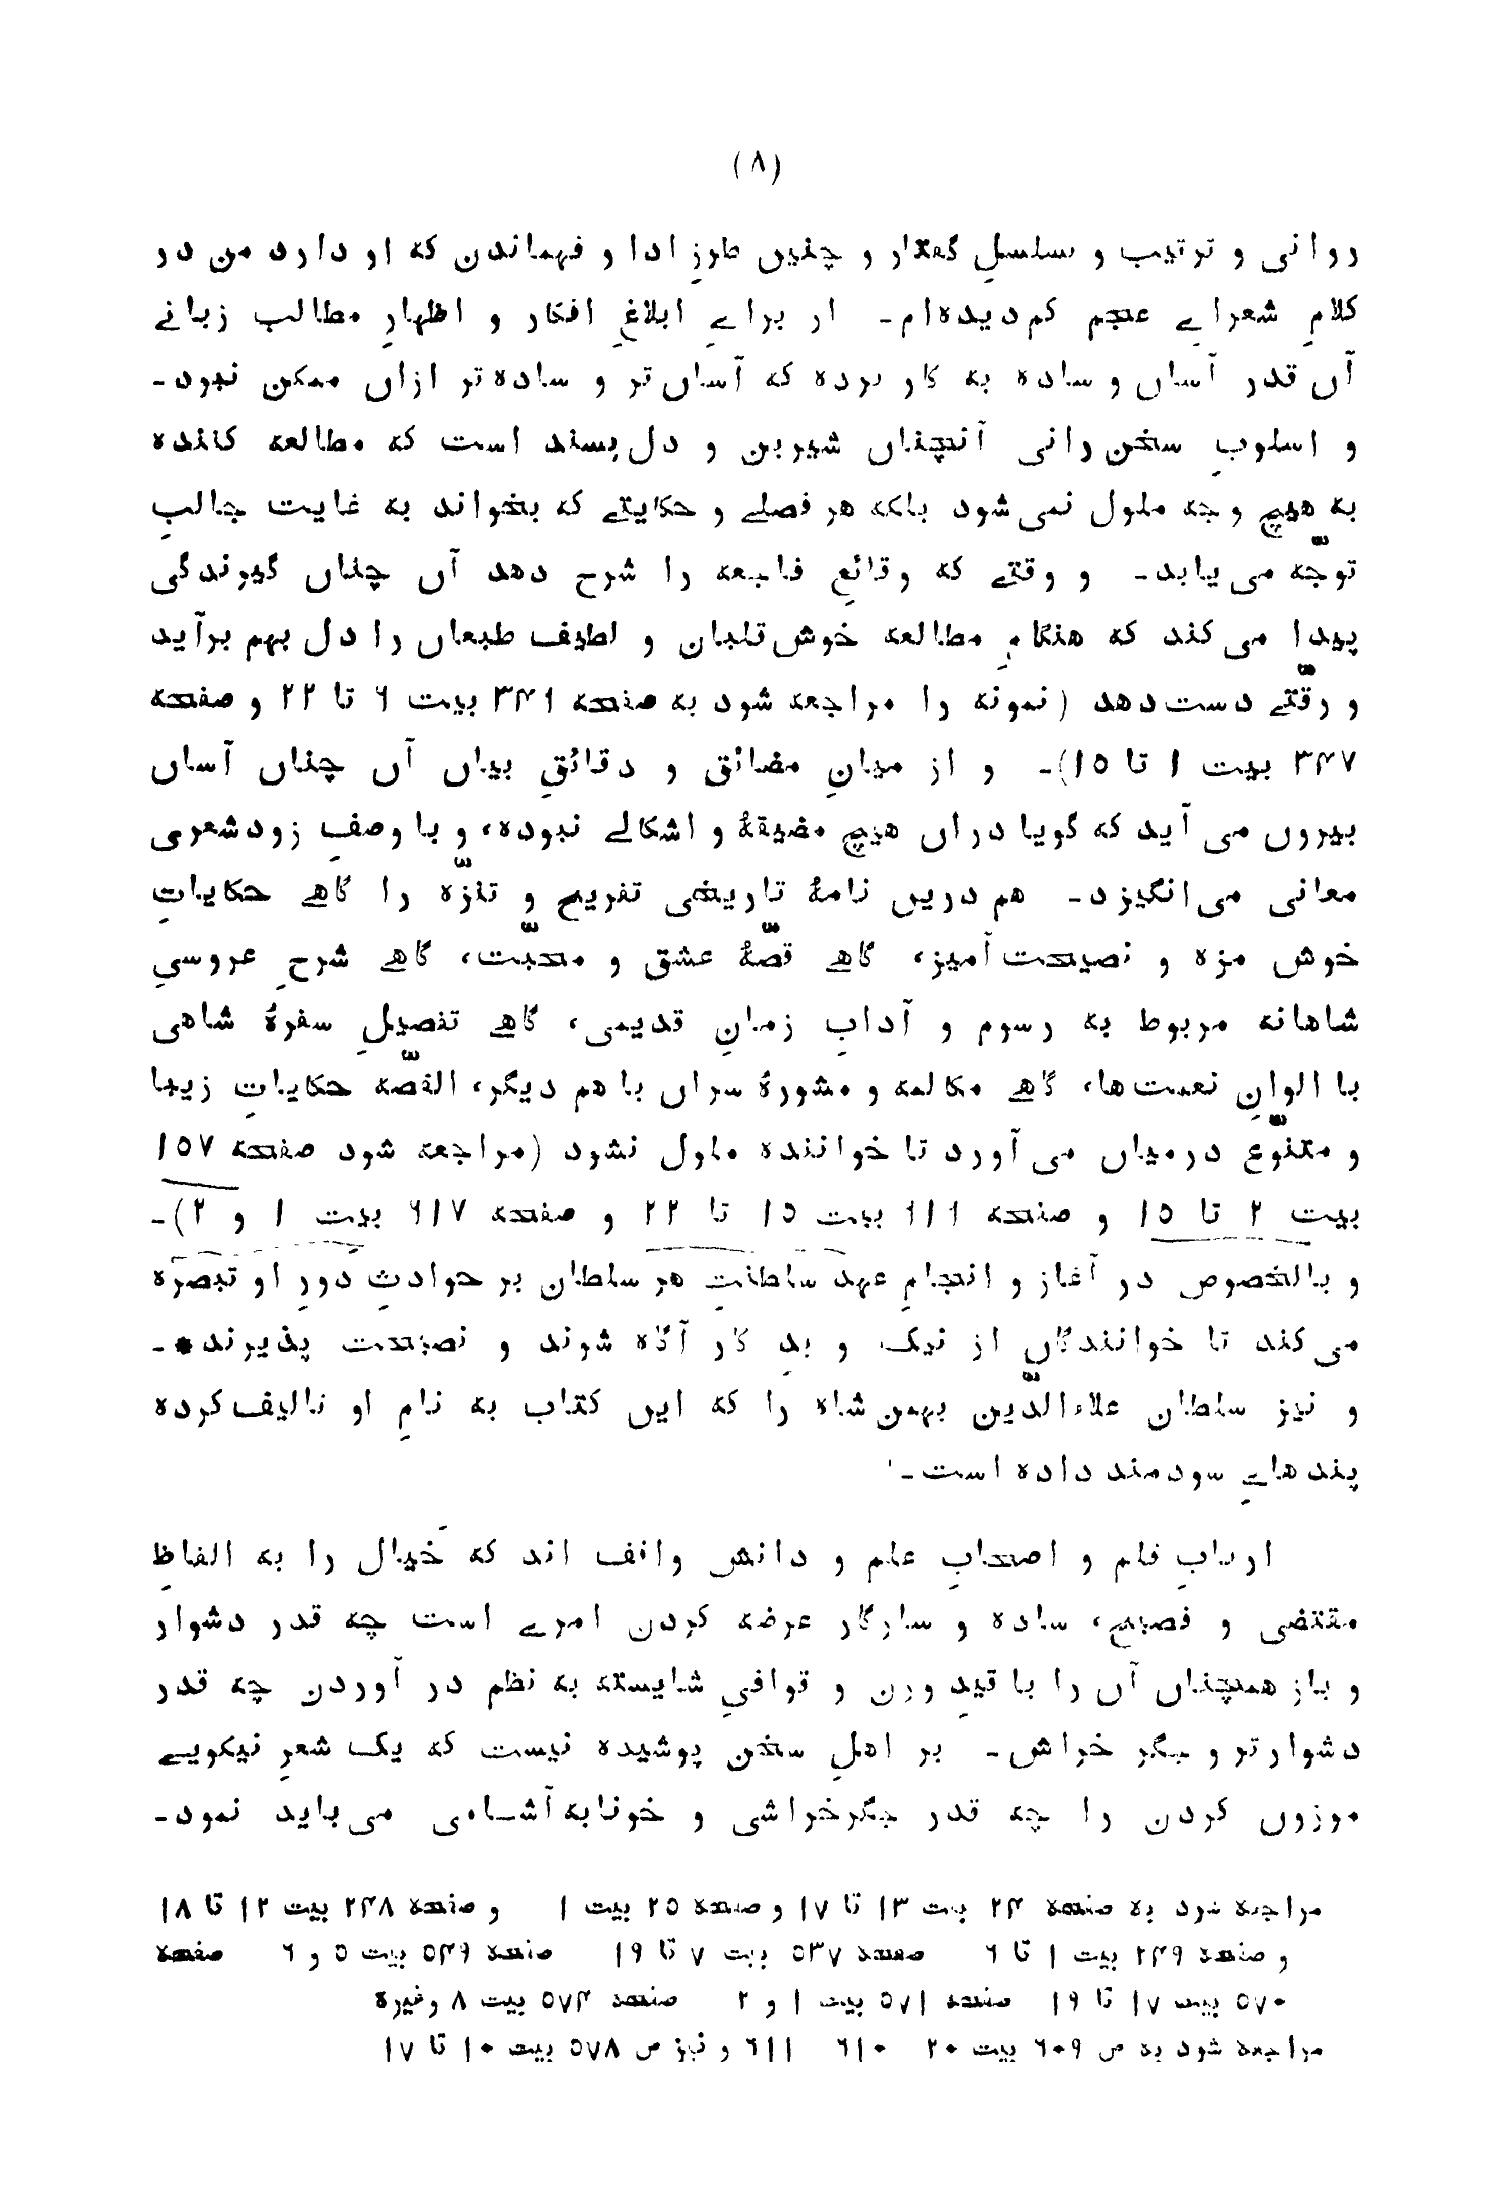 (۸)
روانی و ترتیب و تسلسلِ گفتار و چنیں طرزِ ادا و فہماندن کہ او دارد من در
کلامِ شعراے عجم کم‌دیدہ‌ام۔ از براے ابلاغِ افکار و اظہارِ مطالب زبانے
آں قدر آساں و سادہ بہ کار بردہ کہ آساں‌تر و سادہ‌تر ازاں ممکن نبود۔
و اسلوبِ سخن‌رانی آنچناں شیرین و دل‌پسند است کہ مطالعہ کنندہ
بہ ھیچ وجہ ملول نمی‌شود بلکہ ھر فصلے و حکایتے کہ بخواند بہ غایت جالبِ
توجّہ می‌یابد۔ و وقتے کہ وقائعِ فاجعہ را شرح دھد آں چناں گیرندگی
پیدا می‌کند کہ ھنگامِ مطالعہ خوش‌قلبان و لطیف طبعاں را دل بہم برآید
و رقّتے دست‌دھد (نمونہ را مراجعہ شود بہ صفحہ ۳۴۶ بیت ۶ تا ۲۲ و صفحہ
۳۴۷ بیت ۱ تا ۱۵)۔ و از میانِ مضائق و دقائقِ بیاں آں چناں آساں
بیروں می آید کہ گویا دراں ھیچ مضیقۂ و اشکالے نبودہ، و با وصفِ زودشعری
معانی می‌انگیزد۔ ھم دریں نامۂ تاریخی تفریح و تنزّہ را گاھے حکایاتِ
خوش مزہ و نصیحت‌آمیز، گاھے قصّۂ عشق و محبّت، گاھے شرحِ عروسیِ
شاھانہ مربوط بہ رسوم و آدابِ زمانِ قدیمی، گاھے تفصیلِ سفرۂ شاھی
با الوانِ نعمت‌ھا، گاھے مکالمہ و مشورۂ سراں با ھم دیگر، القصّہ حکایاتِ زیبا
و متنوّع درمیاں می آورد تا خوانندہ ملول نشود (مراجعہ شود صفحہ ۱۵۷
بیت ۲ تا ۱۵ و صفحہ ۱۱۶ بیت ۱۵ تا ۲۲ و صفحہ ۶۱۷ بیت ۱ و ۲)۔
و بالخصوص در آغاز و انجامِ عہد سلطنتِ ھر سلطان بر حوادثِ دورِ او تبصرہ
می‌کند تا خوانندگاں از نیک و بدِ کار آگاہ شوند و نصیحت پذیرند*۔
و نیز سلطان علاءالدّین بہمن‌شاہ را کہ ایں کتاب بہ نامِ او تالیف‌کردہ
پندھاےِ سودمند دادہ است۔
اربابِ قلم و اصحابِ علم و دانش واقف اند کہ خیال را بہ الفاظِ
مقتضی و فصیح، سادہ و سازگار عرضہ کردن امرے است چہ قدر دشوار
و باز ھمچناں آں را با قیدِ وزن و قوافیِ شایستہ بہ نظم در آوردن چہ قدر
دشوارتر و جگر خراش۔ بر اھلِ سخن پوشیدہ نیست کہ یک شعرِ نیکویے
موزوں کردن را چہ قدر جگرخراشی و خونابہ‌آشامی می‌باید نمود۔
مراجعہ شود بہ صفحہ ۲۴ بیت ۱۳ تا ۱۷ و صفحہ ۲۵ بیت ۱ و صفحہ ۲۴۸ بیت ۱۲ تا ۱۸
و صفحہ ۲۴۹ بیت ۱ تا ۶ صفحہ ۵۳۷ بیت ۷ تا ۱۹ صفحہ ۵۴۹ بیت ۵ و ۶ صفحہ
۵۷۰ بیت ۱۷ تا ۱۹ صفحہ ۵۷۱ بیت ۱ و ۲ صفحہ ۵۷۴ بیت ۸ وغیرہ
مراجعہ شود بہ ص ۶۰۹ بیت ۲۰ ۶۱۰ ۶۱۱ و نیز ص ۵۷۸ بیت ۱۰ تا ۱۷